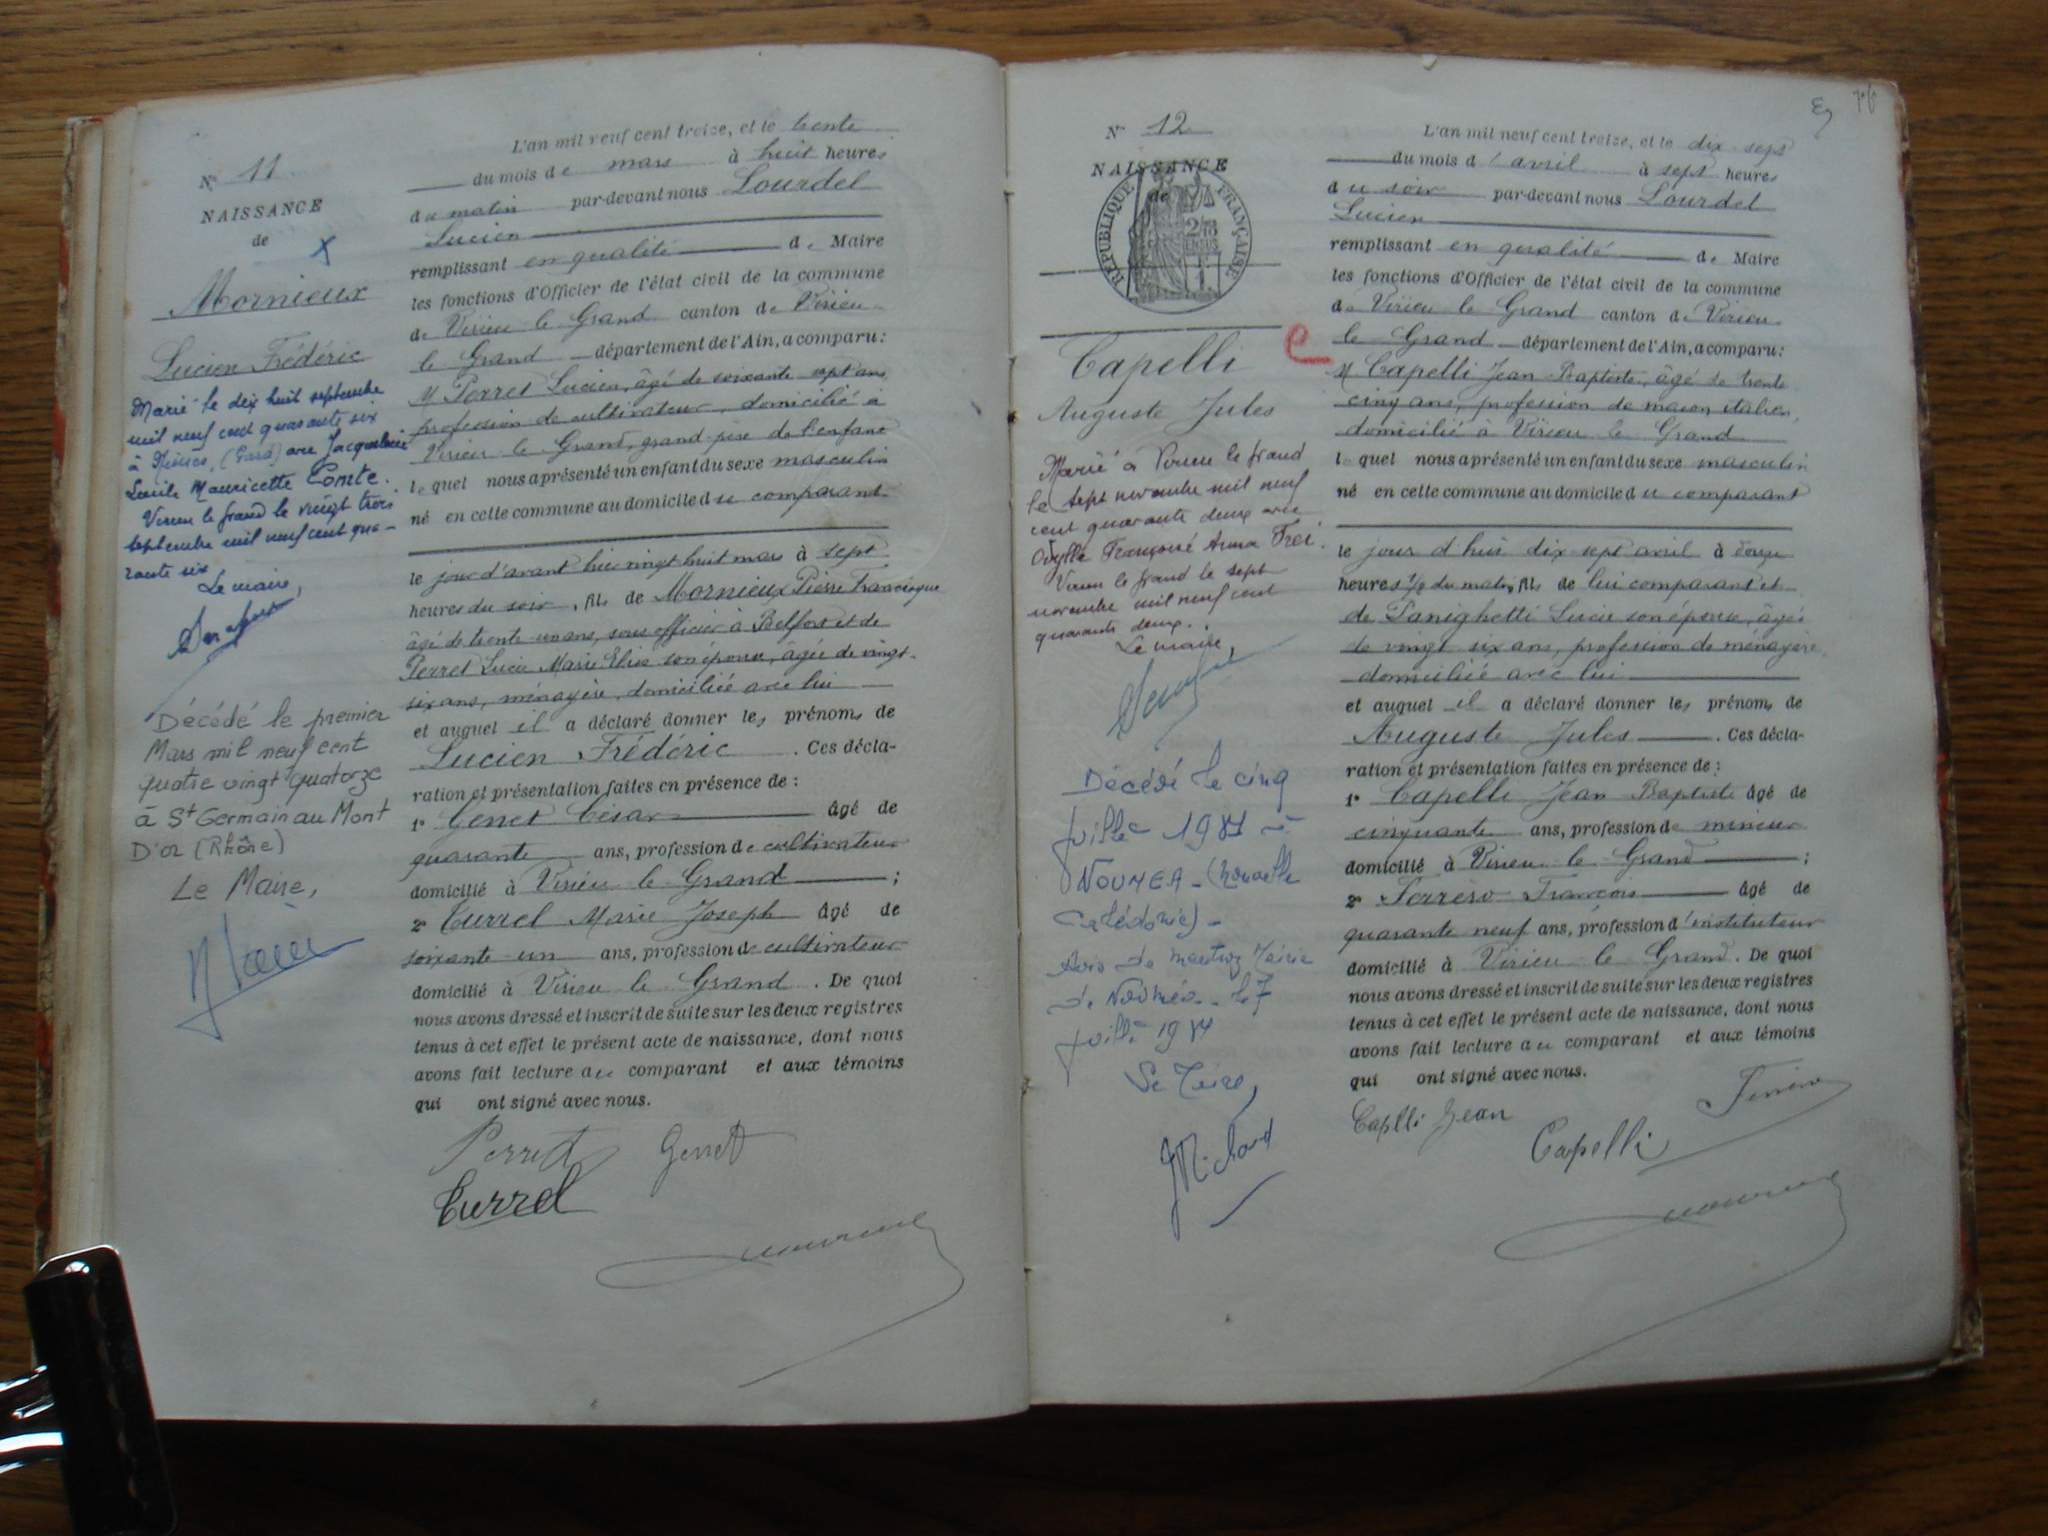 N° 11
NAISSANCE
de
Mornieux
Lucien Frédéric
Marié le dix huit septembre
mil neuf cent quarante six
à Nîmes, (Gard) avec Jacqueline
Lucile Mauricette Comte.
Virieu le Grand le vingt trois
septembre mil neuf cent qua-
rante six
Le maire,
Décédé le premier
Mars mil neuf cent
quatre vingt quatorze
à St Germain au Mont
D'or (Rhône)
Le Maire,
L'an mil neuf cent treize, et le trente
du mois de mars à huit heures
du matin par-devant nous Lourdel
Lucien
remplissant en qualité de Maire
les fonctions d'Officier de l'état civil de la commune
de Virieu le Grand canton de Virieu
le Grand département de l'Ain, a comparu:
M Perret Lucien, âgé de soixante sept ans
profession de cultivateur, domicilié à
Virieu le Grand, grand père de l'enfant
lequel nous a présenté un enfant du sexe masculin
né en cette commune au domicile du comparant
le jour d'avant hier vingt huit mars à sept
heures du soir, fils de Mornieux Pierre Francisque
âgé de trente un ans, sous officier à Belfort et de
Perret Lucie Marie Elise son épouse, âgée de vingt-
six ans, ménagère, domiciliée avec lui
et auquel il a déclaré donner les prénoms de
Lucien Frédéric. Ces décla-
ration et présentation faites en présence de :
1° Genet César âgé de
quarante ans, profession de cultivateur
domicilié à Virieu le Grand ;
2° Currel Marie Joseph âgé de
soixante un ans, profession de cultivateur
domicilié à Virieu le Grand. De quoi
nous avons dressé et inscrit de suite sur les deux registres
tenus à cet effet le présent acte de naissance, dont nous
avons fait lecture au comparant et aux témoins
qui ont signé avec nous.
Perret Genet
Currel
76
N° 12
NAISSANCE
de
RÉPUBLIQUE FRANÇAISE
Capelli
Auguste Jules
Marié à Virieu le Grand
le sept novembre mil neuf
cent quarante deux avec
Odylle Françoise Anna Frei.
Virieu le Grand le sept
novembre mil neuf cent
quarante deux.
Le maire,
Décédé le cinq
juillet 1984 à
NOUMEA - (Nouvelle
Calédonie) -
Avis de mention Mairie
de Nouméa - le 7
juillet 1984
Le Maire,
Michaud
e
L'an mil neuf cent treize, et le dix-sept
du mois d'avril à sept heures
du soir par-devant nous Lourdel
Lucien
remplissant en qualité de Maire
les fonctions d'Officier de l'état civil de la commune
de Virieu le Grand canton de Virieu
le Grand département de l'Ain, a comparu:
M Capelli Jean-Baptiste, âgé de trente
cinq ans, profession de maçon italien,
domicilié à Virieu le Grand
lequel nous a présenté un enfant du sexe masculin
né en cette commune au domicile du comparant
le jour d'hui dix sept avril à onze
heures 1/2 du matin, fils de lui comparant et
de Panighetti Lucie son épouse, âgée
de vingt six ans, profession de ménagère,
domiciliée avec lui
et auquel il a déclaré donner les prénoms de
Auguste Jules. Ces décla-
ration et présentation faites en présence de :
1° Capelli Jean Baptiste âgé de
cinquante ans, profession de mineur
domicilié à Virieu le Grand ;
2° Ferrero François âgé de
quarante neuf ans, profession d'instituteur
domicilié à Virieu le Grand. De quoi
nous avons dressé et inscrit de suite sur les deux registres
tenus à cet effet le présent acte de naissance, dont nous
avons fait lecture au comparant et aux témoins
qui ont signé avec nous.
Caplli Jean
Capelli